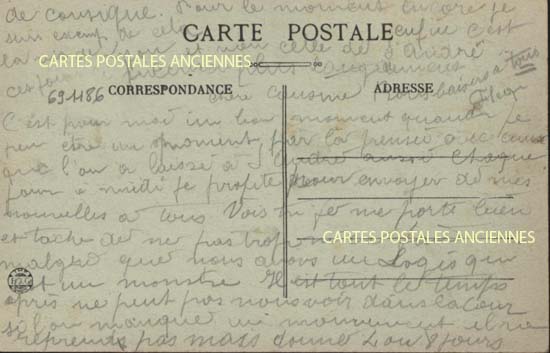 de consigne. Pour le moment encore je
suis exempt de cela
CARTE POSTALE
enfin c'est
la et non celle de St André
CARTES POSTALES ANCIENNES
691186
CORRESPONDANCE
ADRESSE
chère cousine
bons baisers à tous
C'est pour moi un bon moment quand je
peu être un moment, par la pensée à ceux
que l'on a laissé à St André aussi chaque
jour à midi je profite pour envoyer de mes
nouvelles à tous Vois tu je me porte bien
et tache de ne pas trop
CARTES POSTALES ANCIENNES
malgré que nous avons un Logis qui
est un monstre Il est tout le temps
après ne peut pas nous voir dans la cour
si l'on manque un mouvement il ne
reprends pas mais donne 4 ou 8 jours